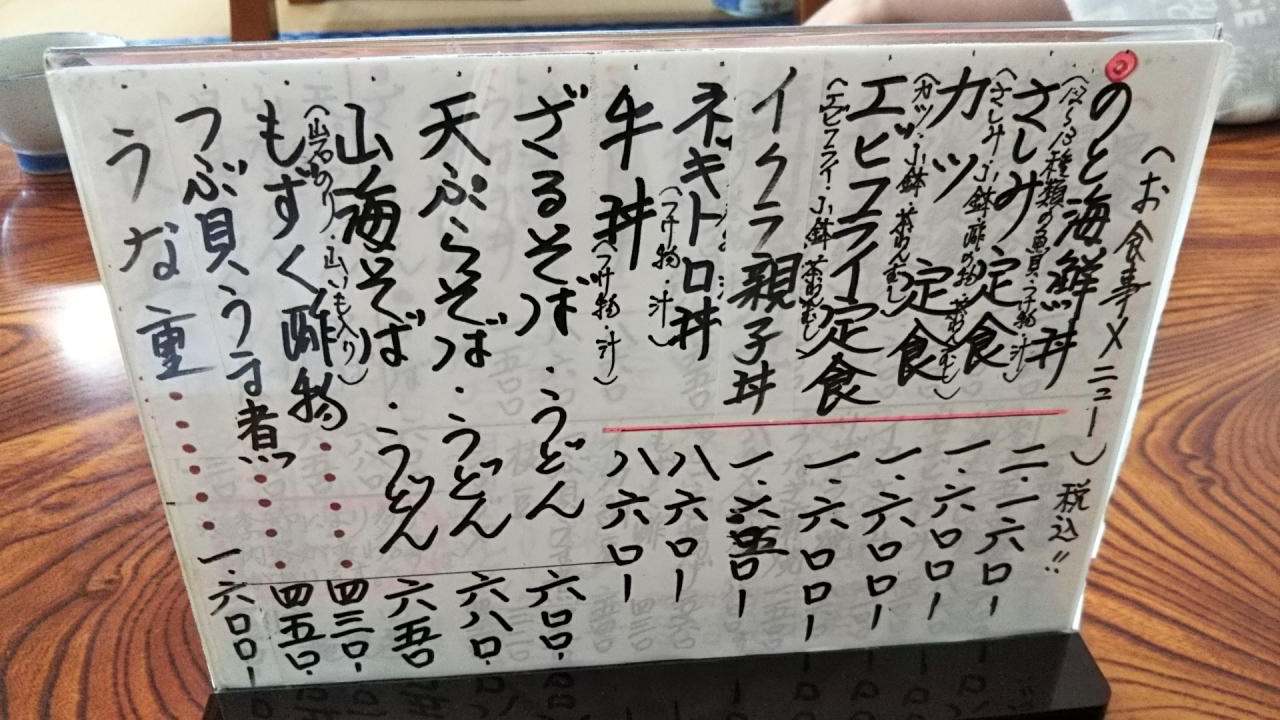 (お食事メニュー) 税込!!
のと海鮮丼 二.一六ロー
種類の魚貝・つけ物・汁)
さしみ定食 一.六ロロー
(さしみ・小鉢・酢の物・茶わんむし)
カツ定食 一.六ロロー
(カツ・小鉢・茶わんむし)
エビフライ定食 一.六ロロー
(エビフライ・小鉢・茶わんむし)
イクラ親子丼
ネギトロ丼 八六ロー
(つけ物・汁)
牛丼 八六ロー
(つけ物・汁)
ざるそば・うどん 六ロロ.
天ぷらそば・うどん 六八ロ.
山海そば・うどん 六五ロ
(山のり・山いも入り)
もずく酢物 四三ロ.
つぶ貝うま煮 四五ロ.
うな重 一.六ロロー